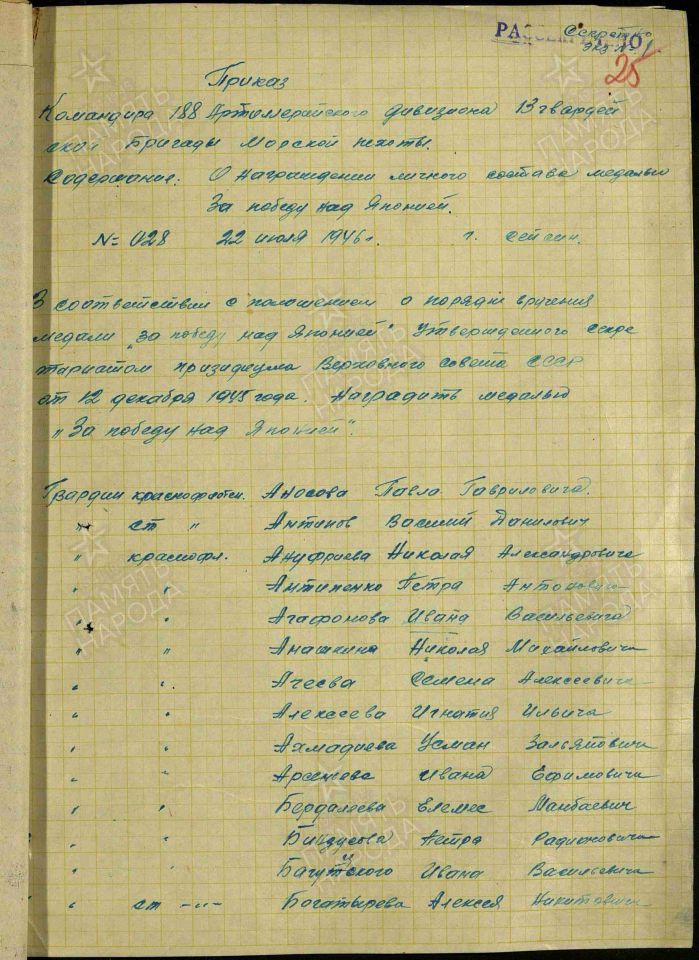 РАССЕКРЕЧЕНО
Секретно
экз № 1
25
Приказ
Командира 188 Артиллерийского дивизиона 13 гвардей
ской Бригады Морской пехоты.
Содержание: О награждении личного состава медалью
За победу над Японией.
N= 028 22 июля 1946 г. г. Сейсин.
В соответствии с положением о порядке вручения
медали "За победу над Японией" Утвержденного секре
тариатом президиума Верховного совета СССР
от 12 декабря 1945 года. Наградить медалью
"За победу над Японией".
Гвардии краснофлотц. Аносова Павла Гавриловича.
" ст " Антипов Василий Данилович
" краснофл. Ануфриева Николая Александровича
" " Антипенко Петра Антоновича
" " Агафонова Ивана Васильевича
" " Анашкина Николая Михайловича
" " Агеева Семена Алексеевича
" " Алексеева Игнатия Ильича
" " Ахмадиева Усман
" " Арсентева Ивана Ефимовича
" " Бердалеева Елемес Манбаевич
" " Петра Радионовича
" " Ивана Васильевича
" ст -"- Богатырева Алексея Никитовича
ПАМЯТЬ НАРОДА